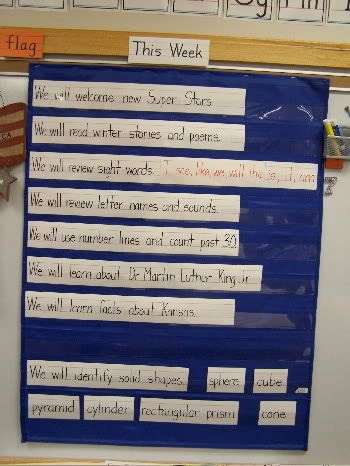 flag
This Week
We will welcome new Super Stars.
We will read winter stories and poems.
We will review sight words. I, see, like, we, will, the, is, it, am
We will review letter names and sounds.
We will use number lines and count past 30.
We will learn about Dr. Martin Luther King Jr.
We will learn facts about Kansas.
We will identify solid shapes. sphere cube
pyramid cylinder rectangular prism cone